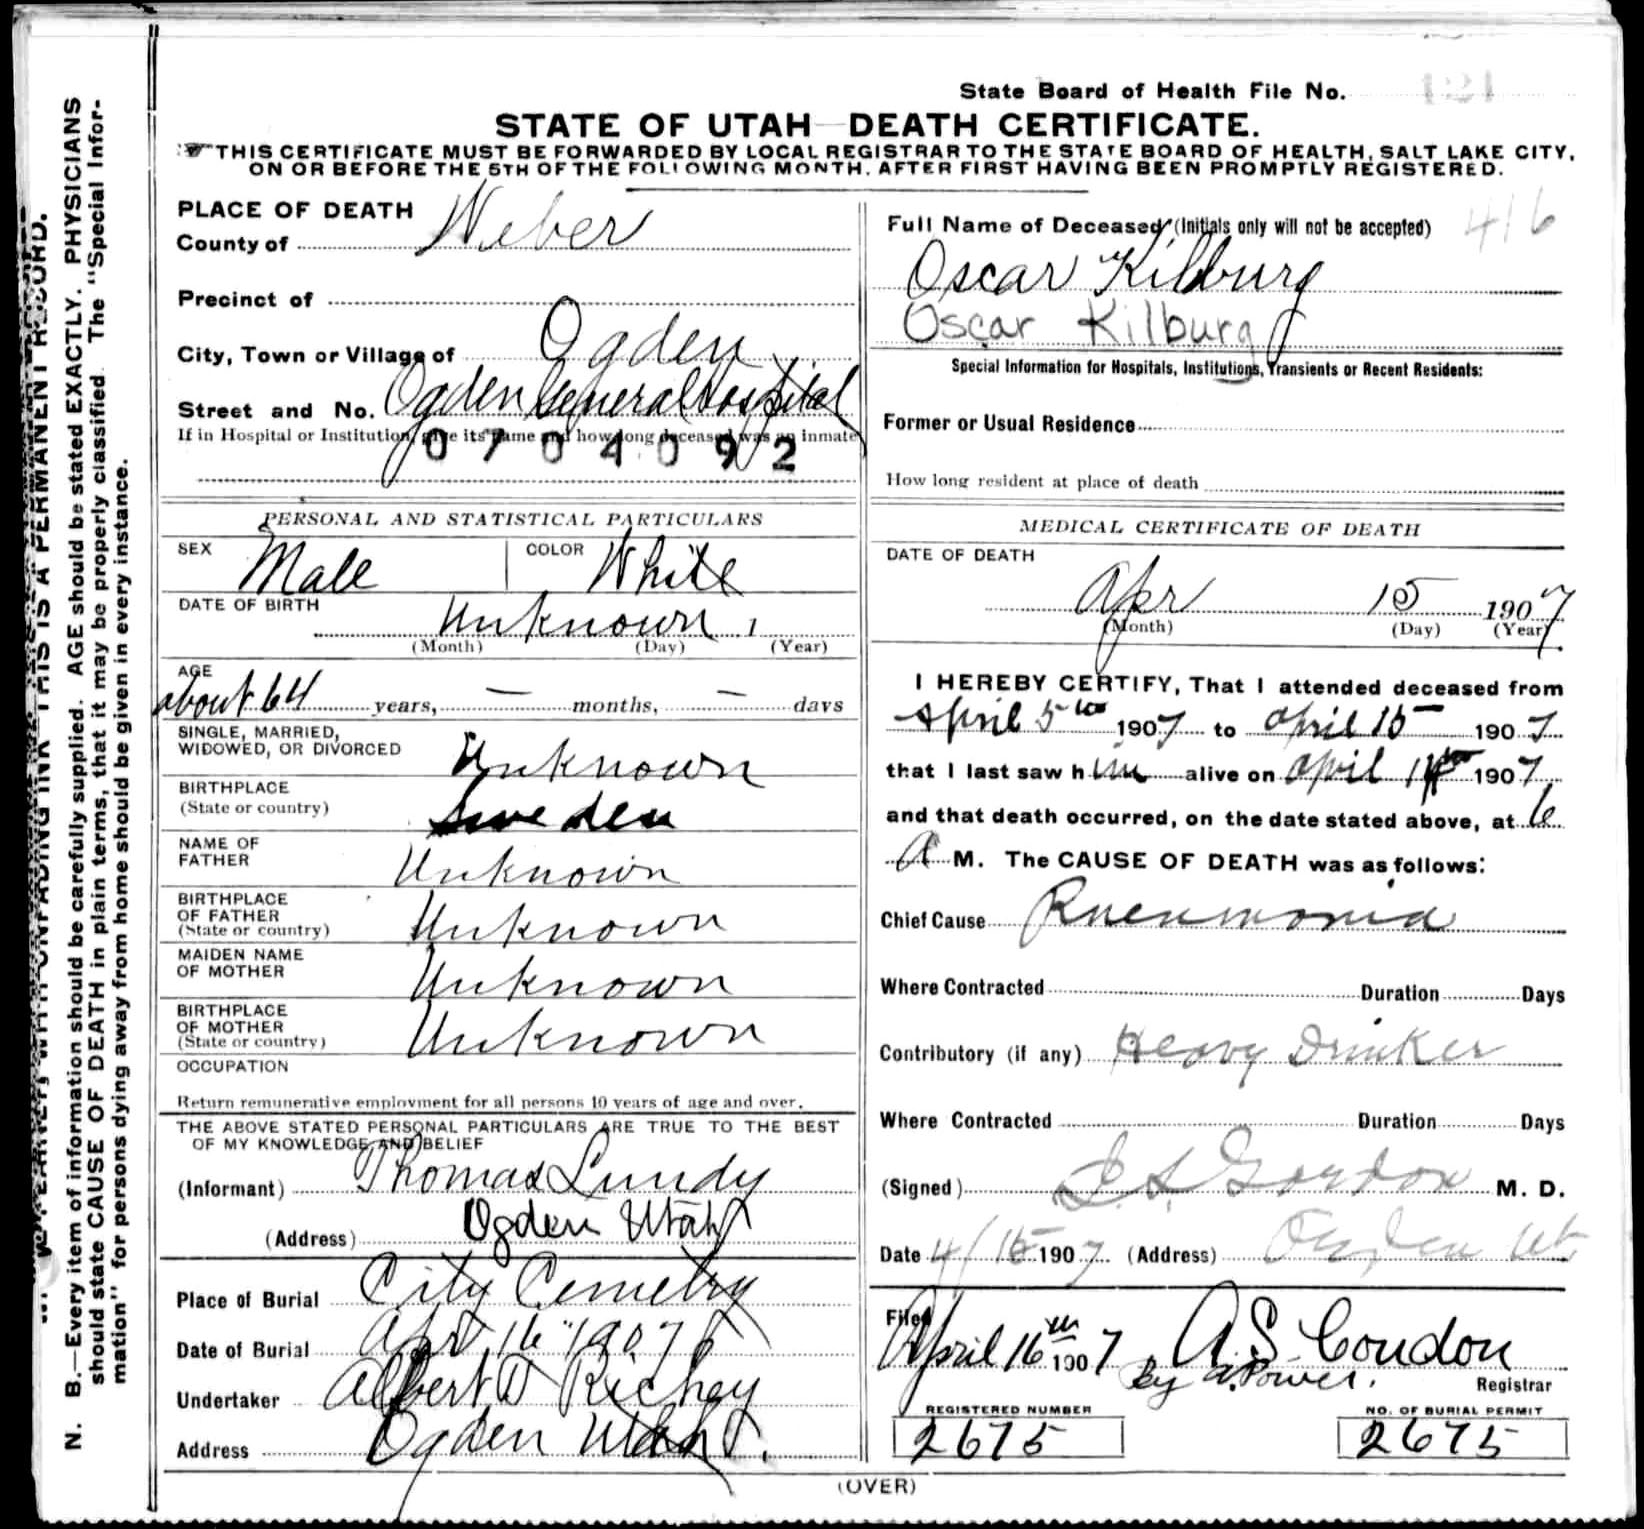 State Board of Health File No. 121
STATE OF UTAH—DEATH CERTIFICATE.
THIS CERTIFICATE MUST BE FORWARDED BY LOCAL REGISTRAR TO THE STATE BOARD OF HEALTH, SALT LAKE CITY,
ON OR BEFORE THE 5TH OF THE FOLLOWING MONTH, AFTER FIRST HAVING BEEN PROMPTLY REGISTERED.
N. B.—Every item of information should be carefully supplied. AGE should be stated EXACTLY. PHYSICIANS
should state CAUSE OF DEATH in plain terms, that it may be properly classified. The "Special Infor-
mation" for persons dying away from home should be given in every instance.
THIS IS A PERMANENT RECORD.
PLACE OF DEATH
County of Weber
Precinct of
City, Town or Village of Ogden
Street and No. Ogden General Hospital
If in Hospital or Institution, give its name and how long deceased was an inmate
0704092
PERSONAL AND STATISTICAL PARTICULARS
SEX Male COLOR White
DATE OF BIRTH
Unknown 1
(Month) (Day) (Year)
AGE
about 64 years, — months, — days
SINGLE, MARRIED,
WIDOWED, OR DIVORCED Unknown
BIRTHPLACE
(State or country) Sweden
NAME OF
FATHER Unknown
BIRTHPLACE
OF FATHER
(State or country) Unknown
MAIDEN NAME
OF MOTHER Unknown
BIRTHPLACE
OF MOTHER
(State or country) Unknown
OCCUPATION
Return remunerative employment for all persons 10 years of age and over.
THE ABOVE STATED PERSONAL PARTICULARS ARE TRUE TO THE BEST
OF MY KNOWLEDGE AND BELIEF
(Informant) Thomas Lundy
(Address) Ogden Utah
Place of Burial City Cemetry
Date of Burial Apr 16" 1907
Undertaker Albert D Richey
Address Ogden Utah
Full Name of Deceased, (Initials only will not be accepted) 416
Oscar Kilburg
Oscar Kilburg
Special Information for Hospitals, Institutions, Transients or Recent Residents:
Former or Usual Residence
How long resident at place of death
MEDICAL CERTIFICATE OF DEATH
DATE OF DEATH
Apr 15 1907
(Month) (Day) (Year)
I HEREBY CERTIFY, That I attended deceased from
April 5th 1907 to April 15 1907
that I last saw him alive on April 1907
and that death occurred, on the date stated above, at 6
A M. The CAUSE OF DEATH was as follows:
Chief Cause Pneumonia
Where Contracted Duration Days
Contributory (if any) Heavy Drinker
Where Contracted Duration Days
(Signed) Gordon M. D.
Date 4/15 1907 (Address) Ogden Ut
Filed
April 16th 1907 A. S. Condon
By A. Power. Registrar
REGISTERED NUMBER
2675
NO. OF BURIAL PERMIT
2675
(OVER)